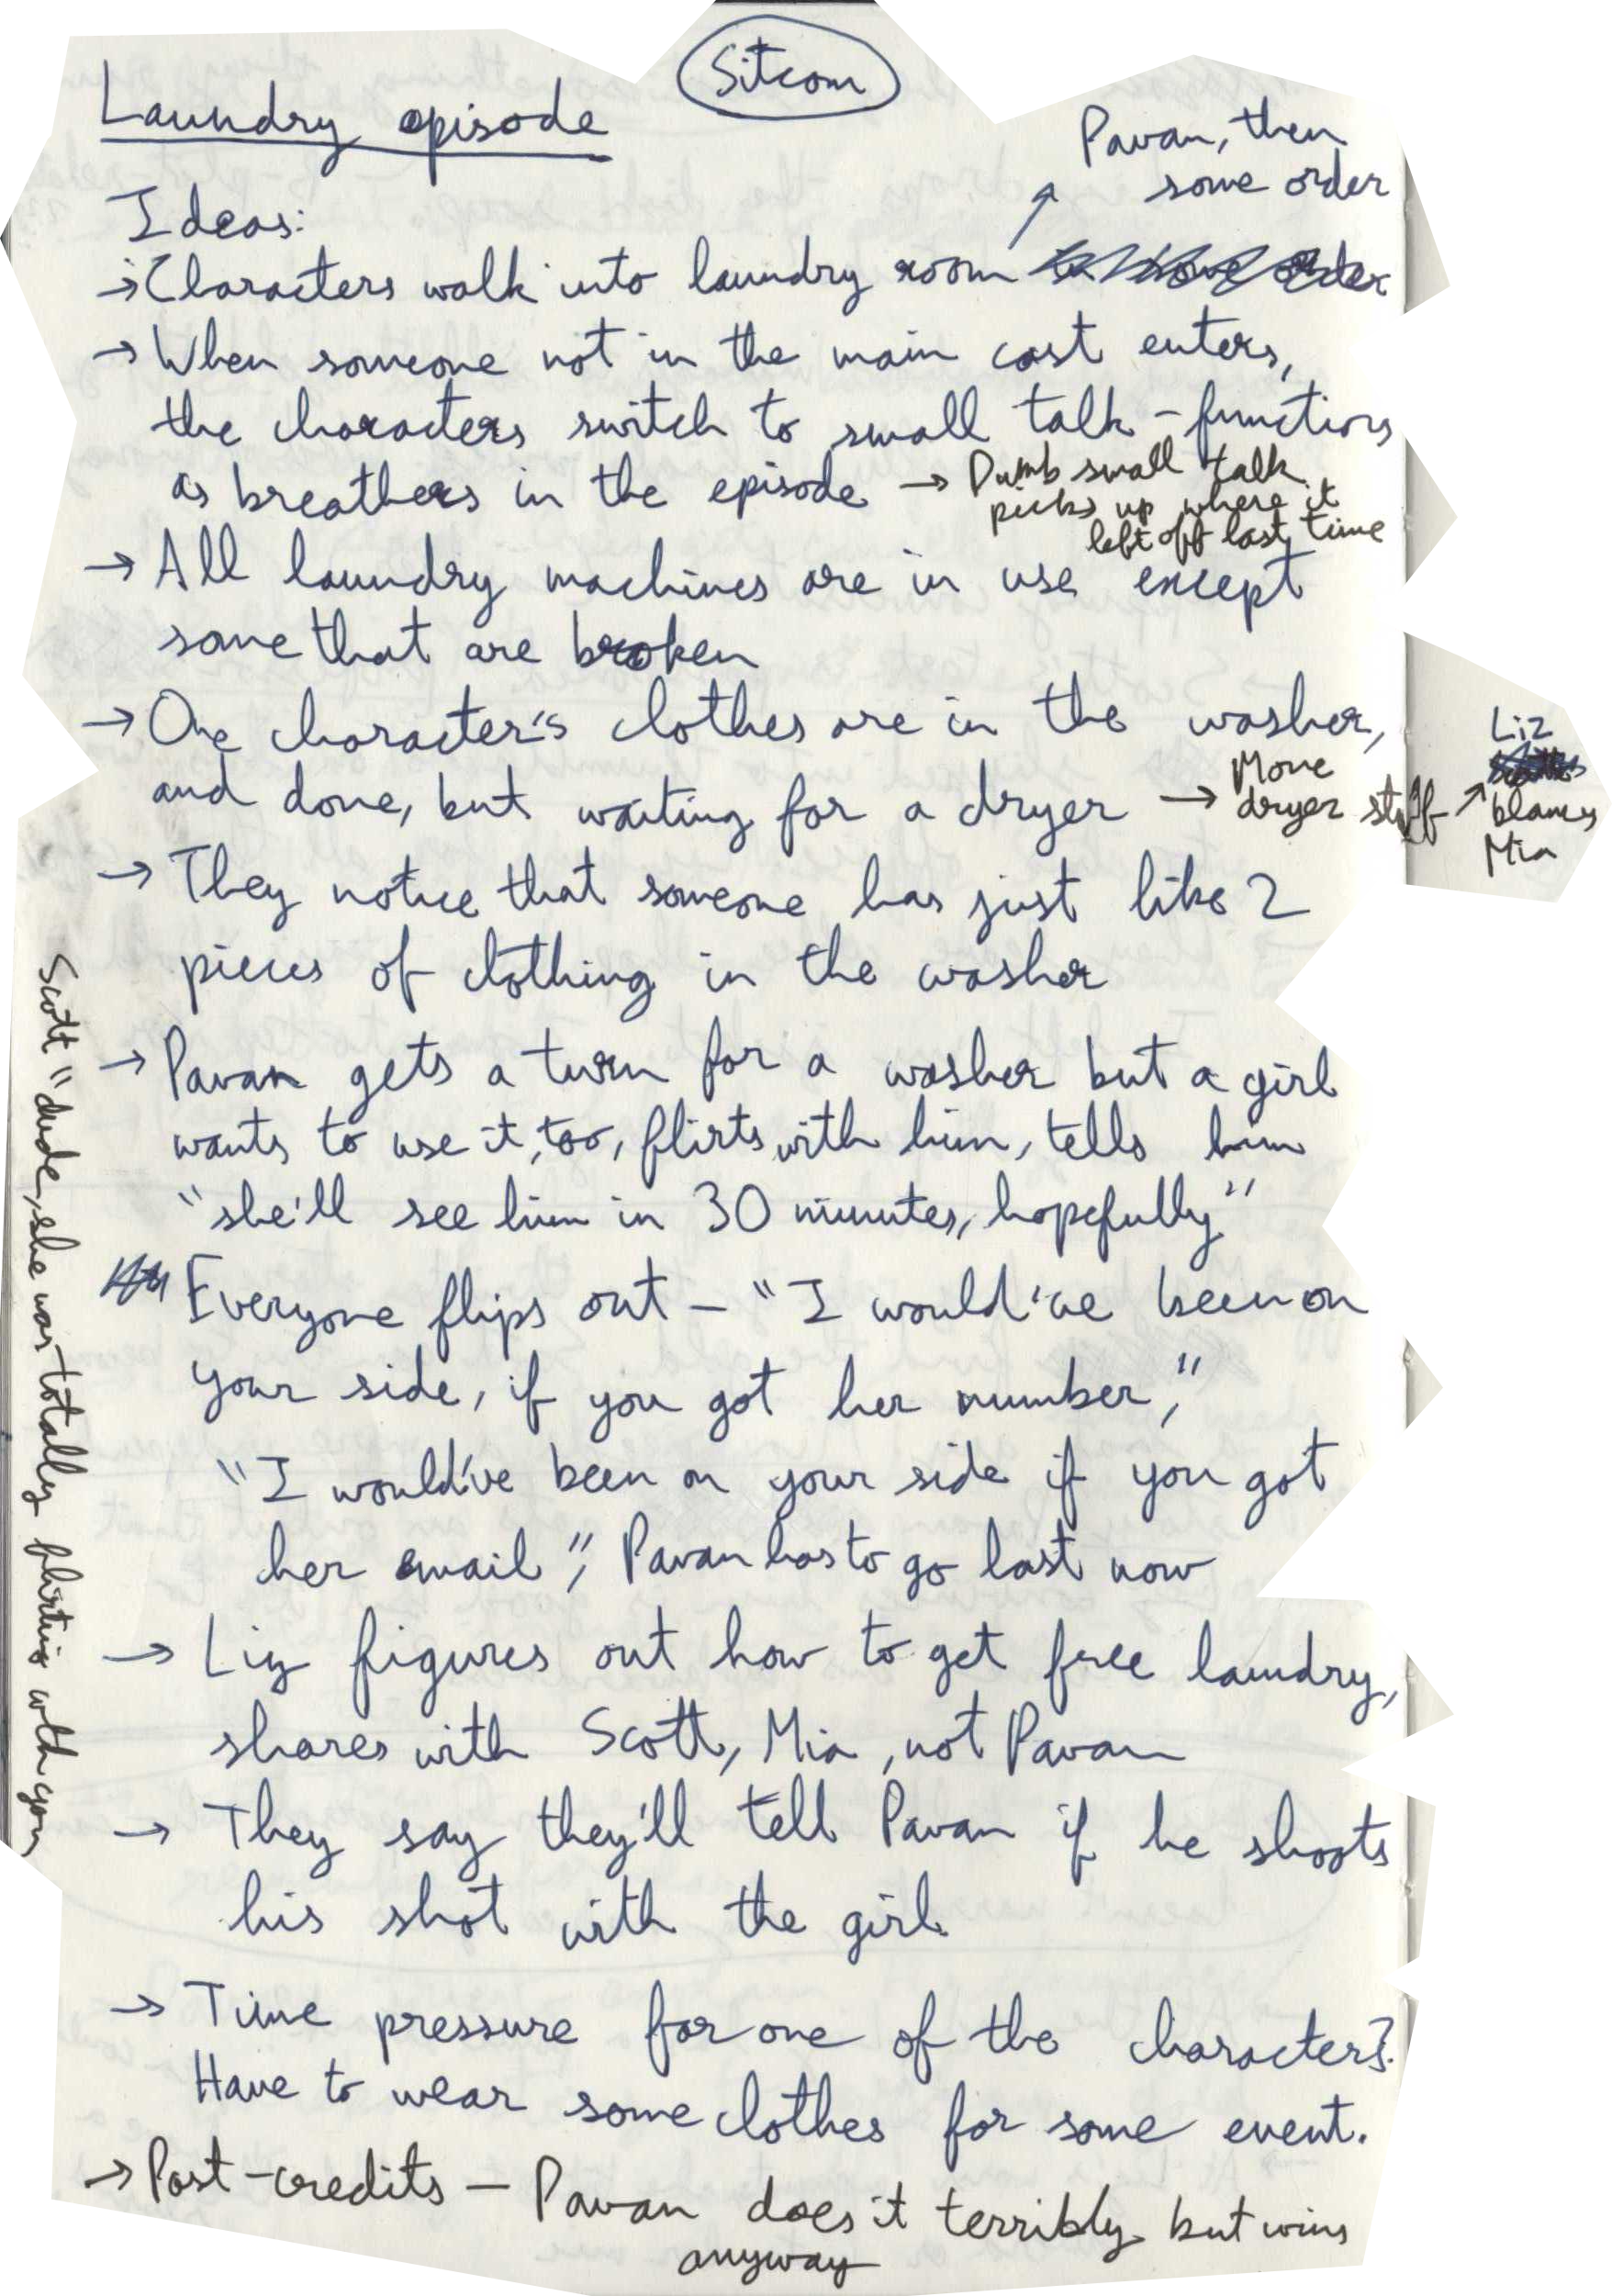 Sitcom
Laundry episode
Pavan, then
some order
Ideas:
→ Characters walk into laundry room
→ When someone not in the main cast enters,
the characters switch to small talk - functions
as breathers in the episode → Dumb small talk
picks up where it
left off last time
→ All laundry machines are in use except
some that are broken
→ One character's clothes are in the washer,
and done, but waiting for a dryer → Move
dryer stuff ↗
Liz
blames
Mia
→ They notice that someone has just like 2
pieces of clothing in the washer
→ Pavan gets a turn for a washer but a girl
wants to use it, too, flirts with him, tells him
"she'll see him in 30 minutes, hopefully"
Everyone flips out - "I would've been on
your side, if you got her number,"
"I would've been on your side if you got
her email", Pavan has to go last now
Scott "dude, she was totally flirting with you
→ Liz figures out how to get free laundry,
shares with Scott, Mia, not Pavan
→ They say they'll tell Pavan if he shoots
his shot with the girl
→ Time pressure for one of the characters?
Have to wear some clothes for some event.
→ Post-credits - Pavan does it terribly but wins
anyway